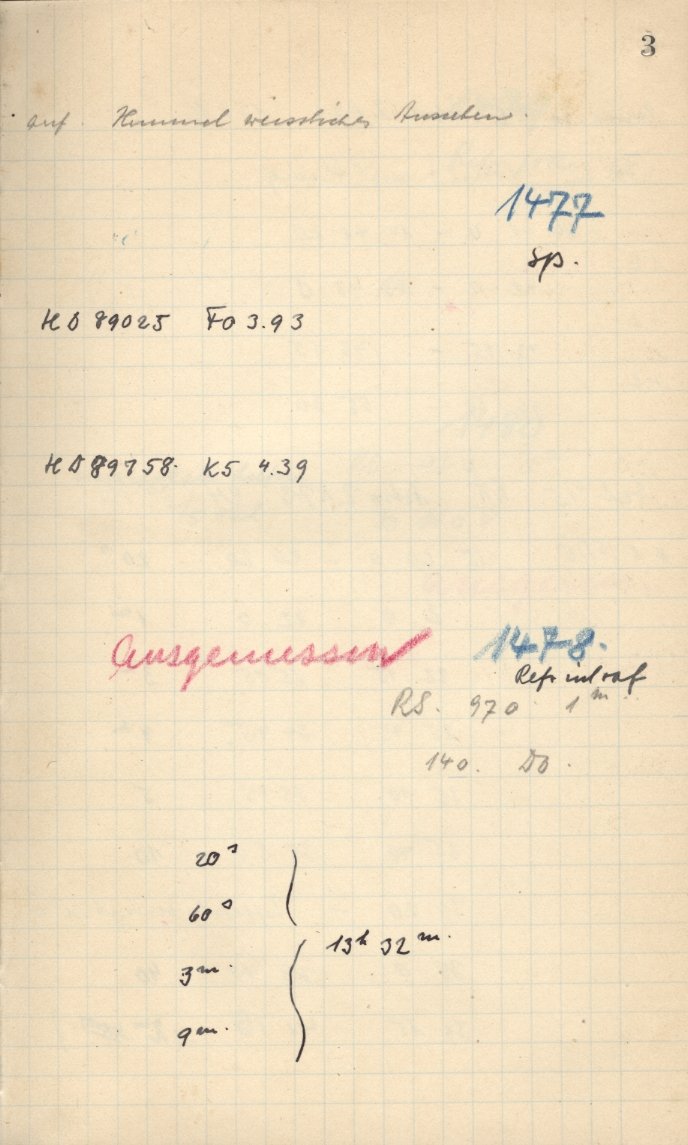 3
auf. Himmel weissliches Aussehen.
1477
Sp.
HD 89025 F0 3.93
HD 89758. K5 4.39
Ausgemessen 1478.
Refr intraf
RS. 970 1 m.
140. DO.
20 s
60 s
13h 32m.
3m.
9m.